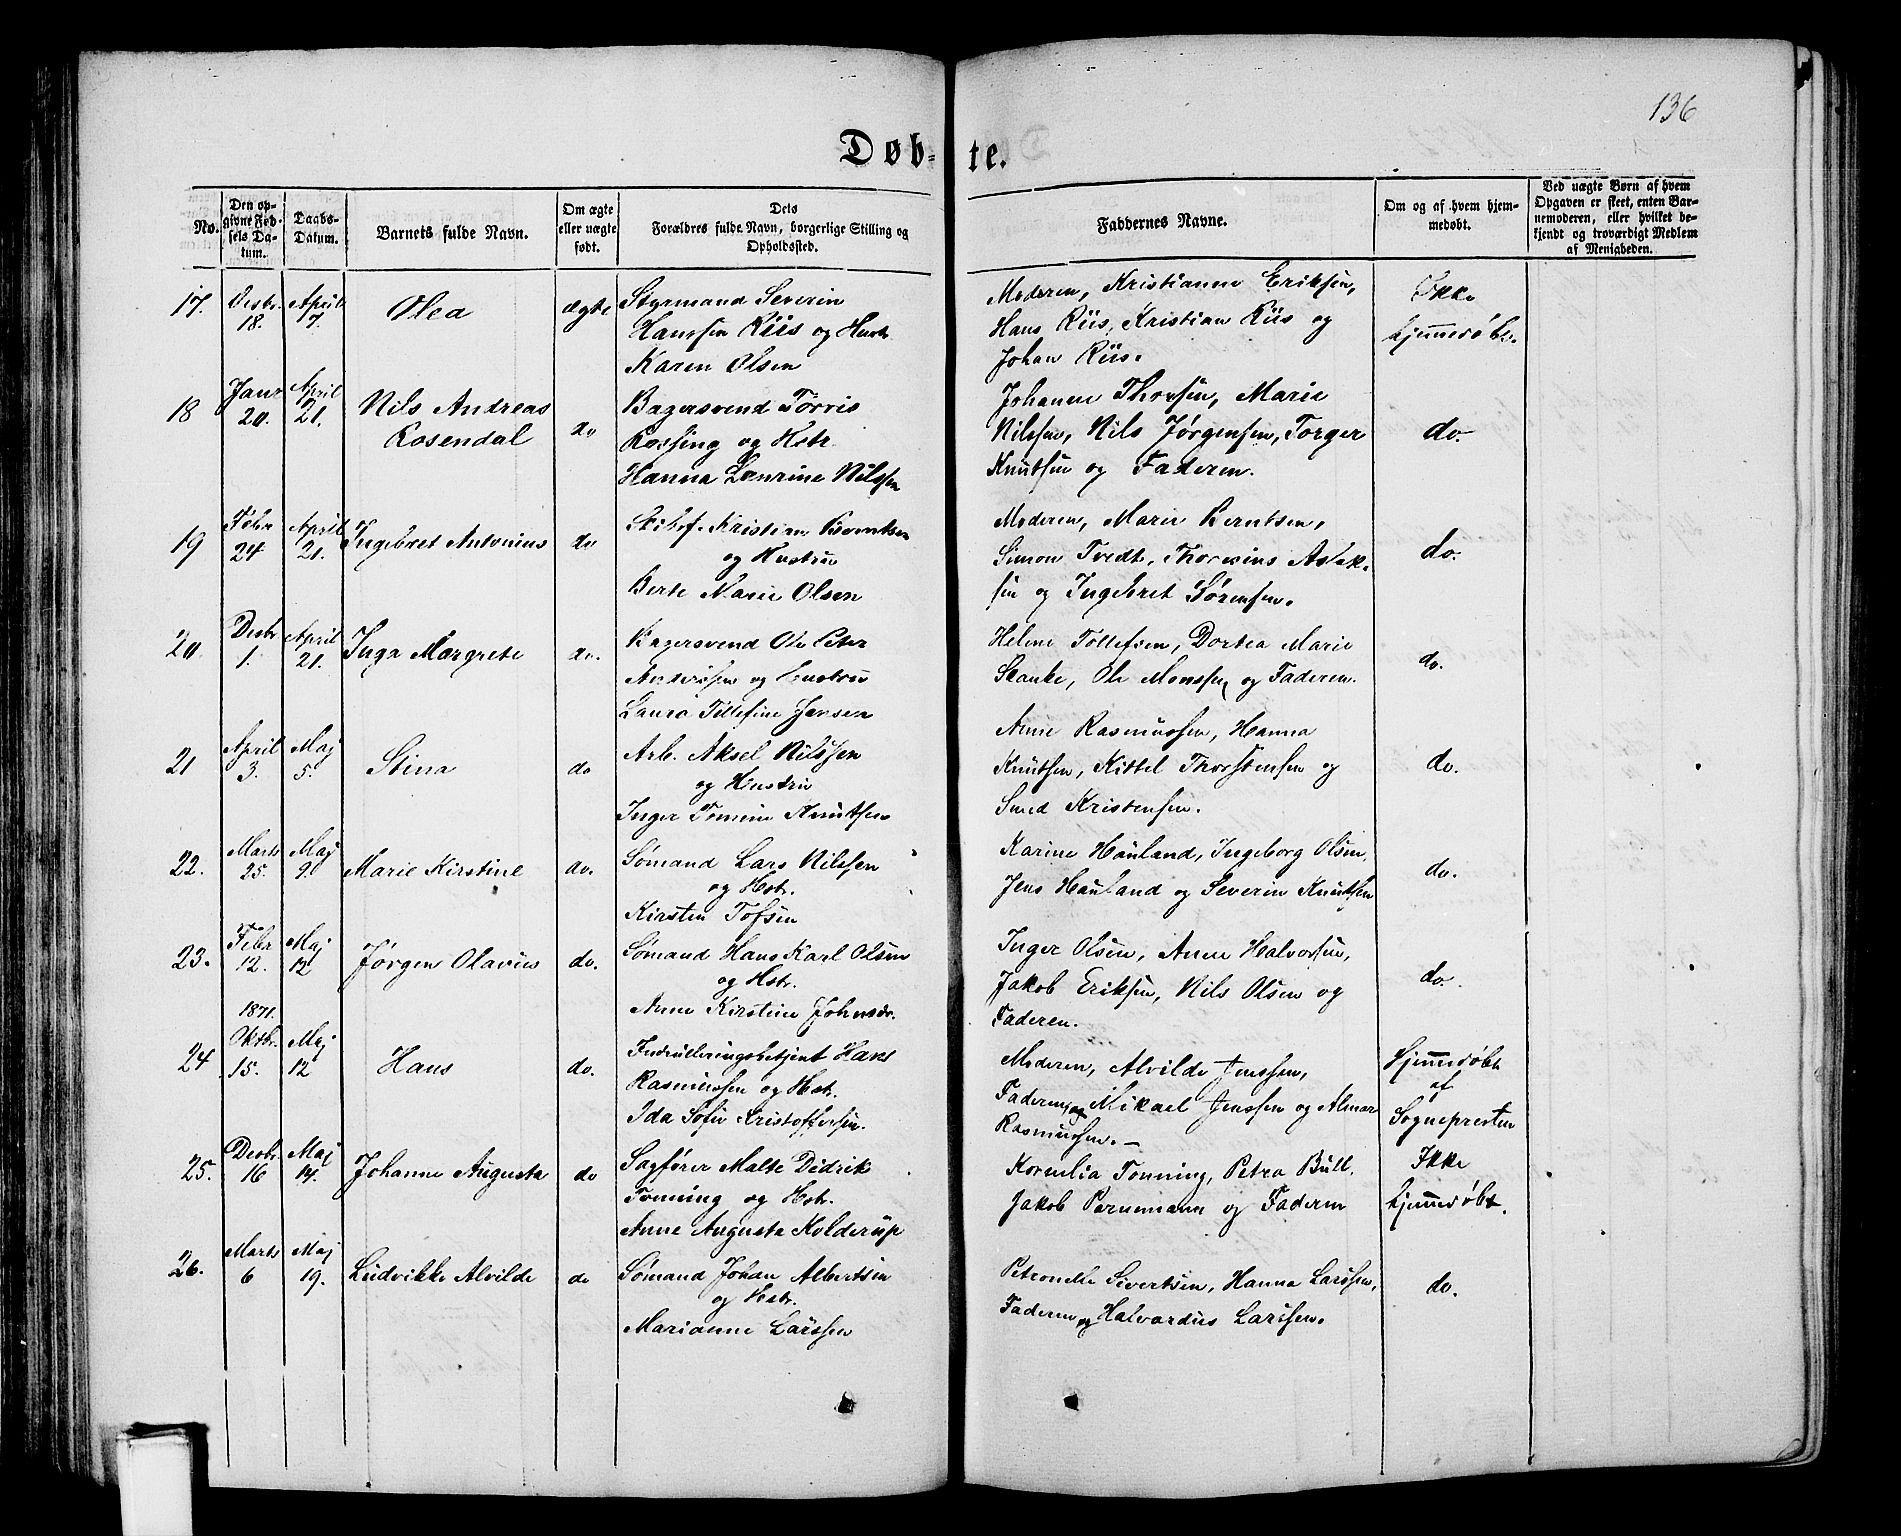 136
Døb-
te.
No.
Den op-
givne Fød-
sels Da-
tum.
Daabs-
Datum.
Barnets fulde Navn.
Om ægte
eller uægte
født.
Dets
Forældres fulde Navn, borgerlige Stilling og
Opholdssted.
Faddernes Navne.
Om og af hvem hjem-
medøbt.
Ved uægte Børn af hvem
Opgaven er skeet, enten Bar-
nemoderen, eller hvilket be-
kjendt og troværdigt Medlem
af Menigheden.
17.
Desbr.
18.
April
7.
Olea
ægte
Styrmand Severin
Hanssen Riis og Hustr.
Karen Olsen
Moderen, Kristianne Eriksen,
Hans Riis, Kristian Riis og
Johan Riis.
Ikke
hjemmedøbt.
18
Janr
20.
April
21.
Nils Andreas
Rosendal
do
Bagersvend Torris
Rossing og Hstr.
Hanna Laurine Nilssen
Johanne Thorsen, Marie
Nilssen, Nils Jørgensen, Torger
Knutsen og Faderen.
do.
19
Febr
24
April
21.
Ingebret Antonius
do
Skibsf. Kristian Berntsen
og Hustru
Berte Marie Olsen
Moderen, Marie Berntsen,
Simon Tvedt, Thorvius Aslak-
sen og Ingebret Sørensen.
do.
20
Desbr
1.
April
21.
Inga Margrete
do.
Bagersvend Ole Peter
Anderssen og Hustru
Laura Tillefine Jensen
Helene Tollefsen, Dortea Marie
Stanke, Ole Monssen og Faderen.
do.
21
April
3.
Maj
5.
Stina
do
Arb. Aksel Nilssen
og Hustru
Inger Tomine Knutsen
Anne Rasmussen, Hanna
Knutsen, Kittel Thorstensen og
Smed Kristensen.
do.
22.
Marts
25.
Maj
9.
Marie Kirstine
do.
Sømand Lars Nilssen
og Hstr.
Kirsten Tofsen
Karine Hauland, Ingeborg Olsen,
Jens Hauland og Severin Knutsen
do.
23.
Febr
12.
Maj
12
Jørgen Olavius
do.
Sømand Hans Karl Olsen
og Hstr.
Anne Kirstine Johnsdr.
Inger Olsen, Anne Halvorsen,
Jakob Eriksen, Nils Olsen og
Faderen.
do.
24
1871.
Oktbr.
15.
Maj
12
Hans
do.
Indrulleringsbetjent Hans
Rasmussen og Hstr.
Ida Sofie Kristoffersen.
Moderen, Alvilde Jenssen,
Faderen, og Mikael Jenssen og Almar
Rasmussen.—
Hjemmedøbt
af
Sogneprested
25.
Desbr.
16
Maj
14.
Johanne Augusta
do
Sagfører Malte Didrik
Tonning og Hstr.
Anne Augusta Kolderup
Kornelia Tonning, Petra Bull,
Jakob Parnemann og Faderen
Ikke
hjemmedøbt.
26.
Marts
6
Maj
19.
Ludvikke Alvilde
do
Sømand Johan Albertsen
og Hstr.
Marianne Larssen
Petronelle Sivertsen, Hanna Larssen,
Faderen og Halvardus Larssen.
do.